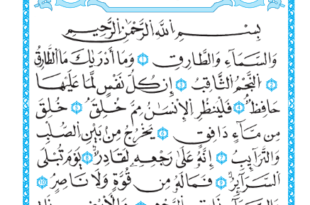 بِسْمِ اللَّهِ الرَّحْمَٰنِ الرَّحِيمِ
وَالسَّمَاءِ وَالطَّارِقِ ۝ وَمَا أَدْرَاكَ مَا الطَّارِقُ
۝ النَّجْمُ الثَّاقِبُ ۝ إِنْ كُلُّ نَفْسٍ لَمَّا عَلَيْهَا
حَافِظٌ ۝ فَلْيَنْظُرِ الْإِنْسَانُ مِمَّ خُلِقَ ۝ خُلِقَ
مِنْ مَاءٍ دَافِقٍ ۝ يَخْرُجُ مِنْ بَيْنِ الصُّلْبِ
وَالتَّرَائِبِ ۝ إِنَّهُ عَلَىٰ رَجْعِهِ لَقَادِرٌ ۝ يَوْمَ تُبْلَى
السَّرَائِرُ ۝ فَمَا لَهُ مِنْ قُوَّةٍ وَلَا نَاصِرٍ ۝